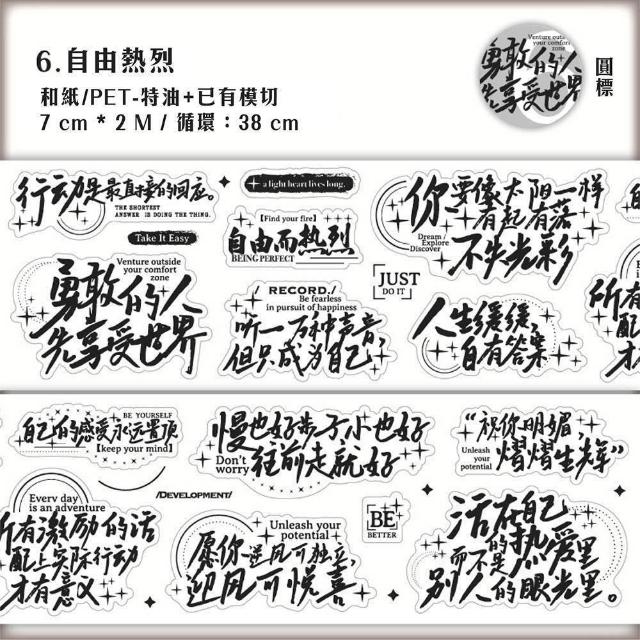 6.自由熱烈
和紙/PET-特油+已有模切
7 cm * 2 M / 循環：38 cm
Venture outside
your comfort
zone
勇敢的人
先享受世界
圓標
行动是最直接的回应。
THE SHORTEST
ANSWER IS DOING THE THING.
Take It Easy
Venture outside
your comfort
zone
勇敢的人
先享受世界
a light heart lives long.
【Find your fire】
自由而热烈
BEING PERFECT
RECORD./
Be fearless
in pursuit of happiness
听一万种声音，
但只成为自己
JUST
DO IT
你要像太阳一样
有起有落
不失光彩
Dream /
Explore
Discover
人生缓缓，
自有答案
自己的感受永远置顶
BE YOURSELF
【keep your mind】
Every day
is an adventure
所有激励的话
配上实际行动
才有意义
/DEVELOPMENT/
慢也好步子小也好
往前走就好
Don't
worry
Unleash your
potential
愿你逆风可独立，
迎风可悦喜
BE
BETTER
“祝你明媚，
熠熠生辉”
Unleash
your
potential
活在自己
的热爱里
而不是
别人的眼光里。